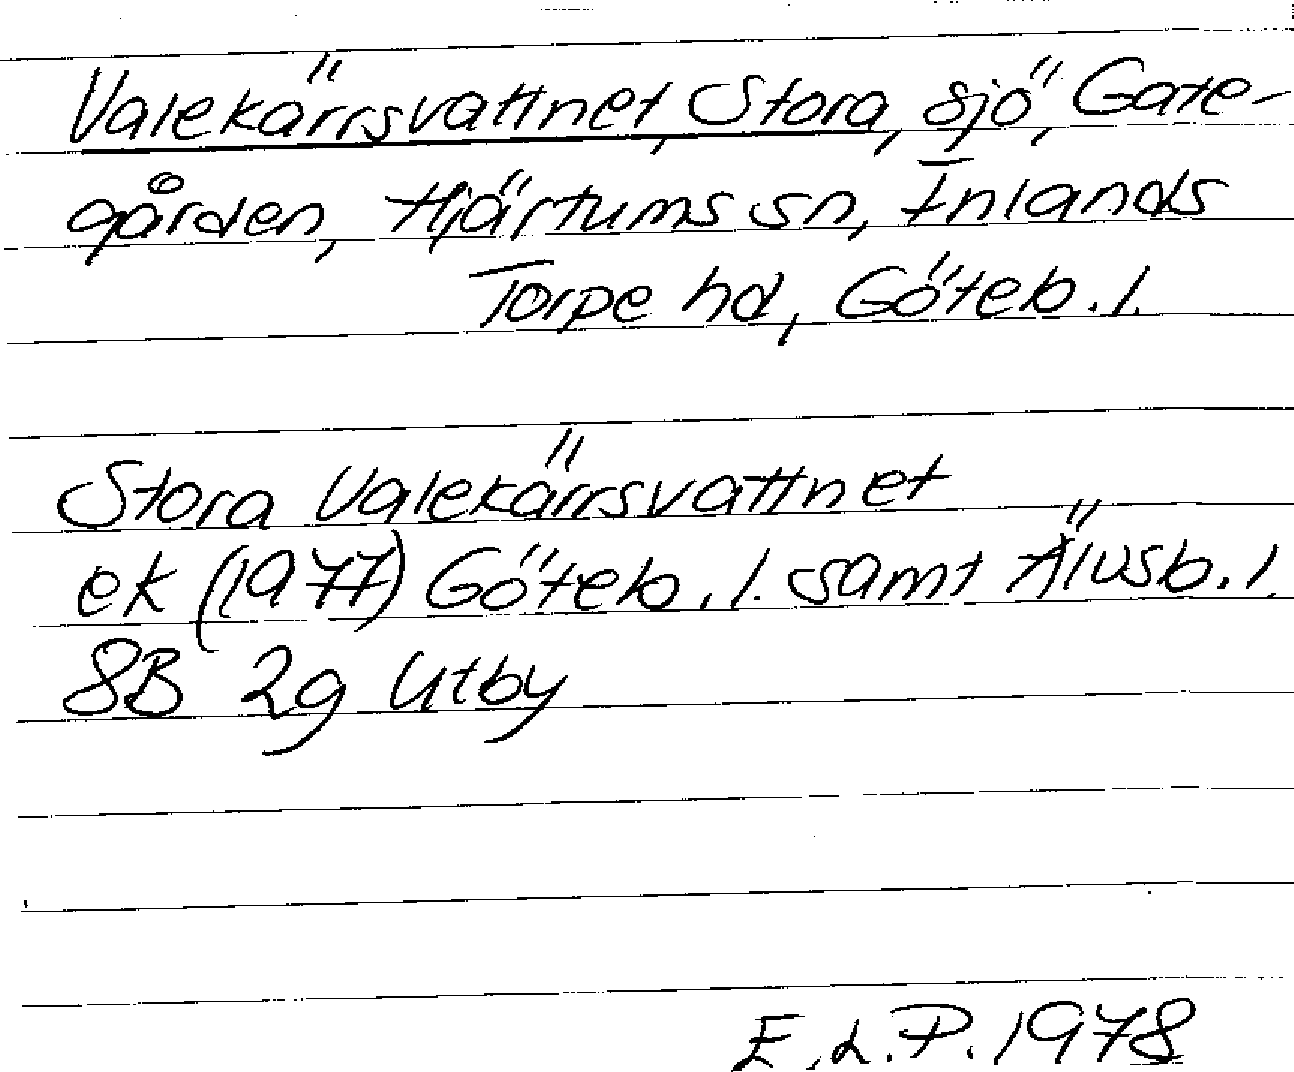 Valekärrsvattnet, Stora, sjö, Gate-
gården, Hjärtums sn, Inlands
Torpe hd, Göteb. l.
Stora Valekärrsvattnet
ek (1977) Göteb. l. samt Älvsb. l.
8B 2g Utby
E.L.P. 1978